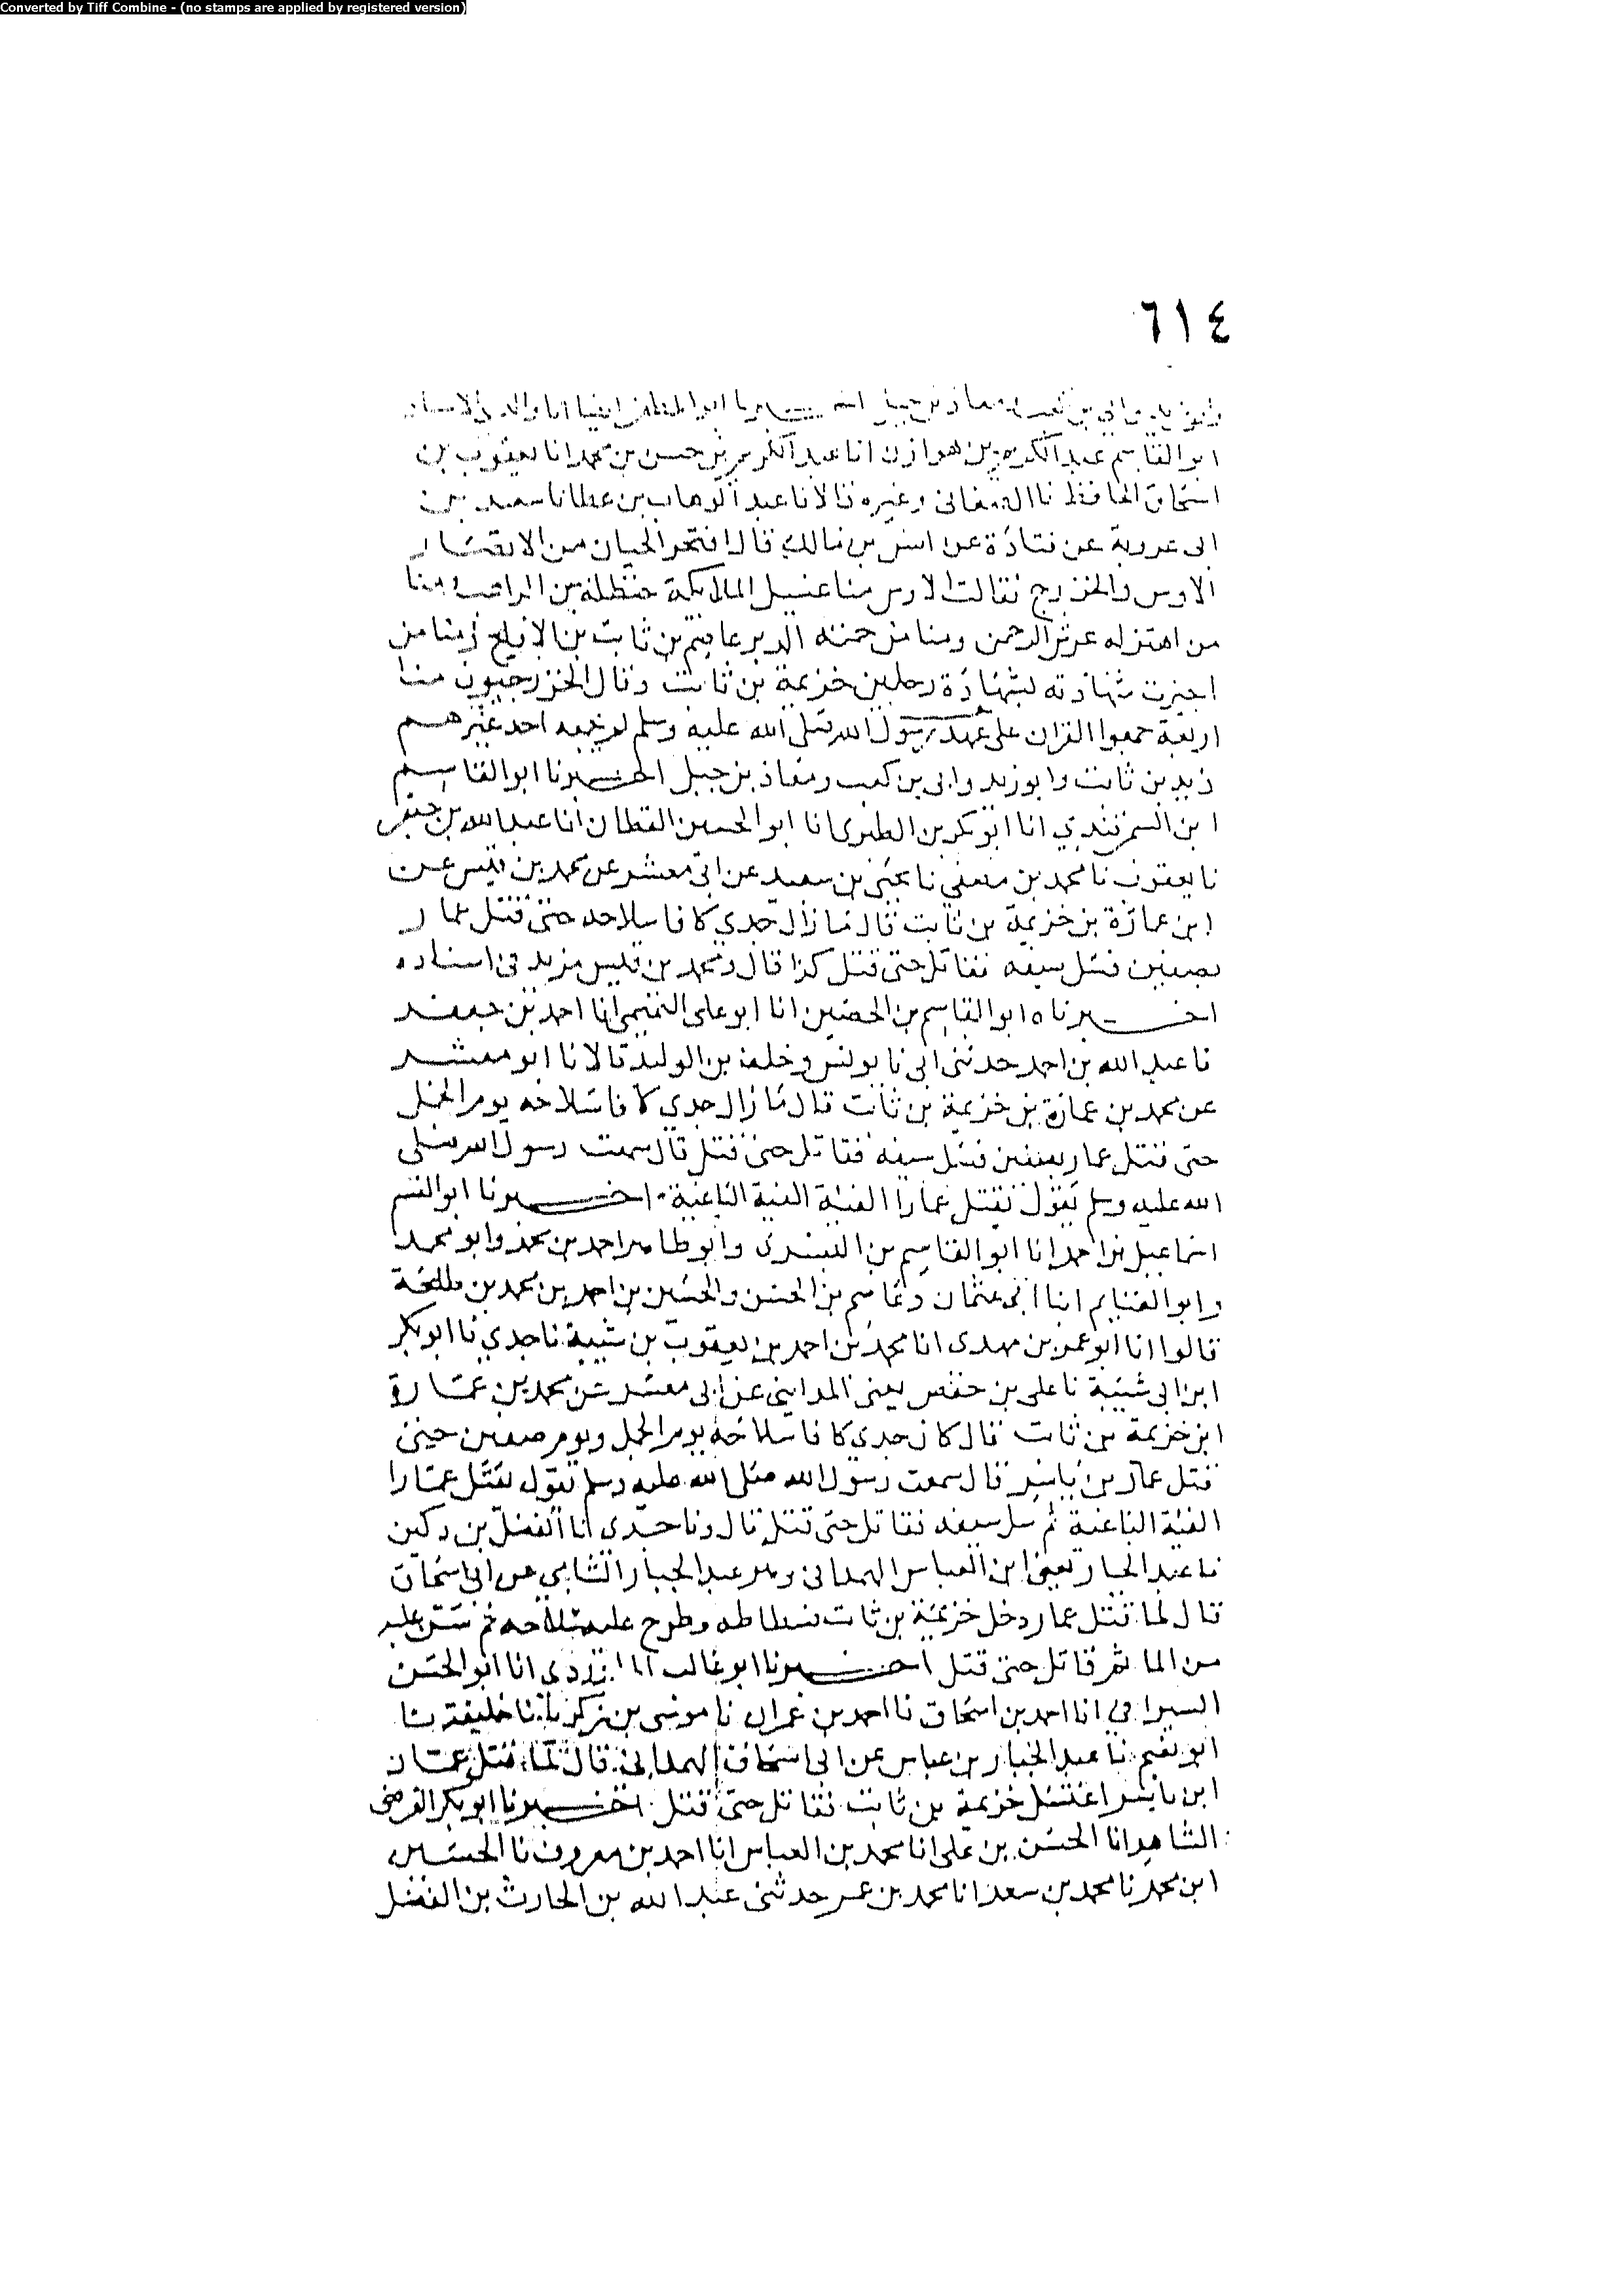 Converted by Tiff Combine - (no stamps are applied by registered version)
٦١٤
وابو زيد وابي بن كعب ومعاذ بن جبل اخبرنا ابو المظفر ايضا انا والدي الاستاذ
ابو القاسم عبد الكريم بن هوازن انا عبد الكريم بن حسن بن محمد انا يعقوب بن
اسحاق الحافظ نا الصغاني وغيره قالا نا عبد الوهاب بن عطا نا سعيد بن
ابى عروبة عن قتادة عن انس بن مالك قال افتخر الحيان من الانصار
الاوس والخزرج فقالت الاوس منا غسيل الملايكة حنظلة بن الراهب ومنا
من اهتز له عرش الرحمن ومنا من حمته الدبر عاصم بن ثابت بن الافلح ومنا من
اجيزت شهادته بشهادة رجلين خزيمة بن ثابت وقال الخزرجيون منا
اربعة جمعوا القران على عهد رسول الله صلى الله عليه وسلم لم يجمعه احد غيرهم
زيد بن ثابت وابو زيد وابى بن كعب ومعاذ بن جبل اخبرنا ابو القاسم
ابن السمرقندي انا ابو بكر بن الطبرى انا ابو الحسين القطان انا عبد الله بن جعفر
نا يعقوب نا محمد بن نا يحيى بن سعيد عن ابي معشر عن محمد بن قيس عن
ابن عمارة بن خزيمة بن ثابت قال ما زال جدي كافا سلاحه حتى قتل عمار
بصفين فسل سيفه فقاتل حتى قتل كذا قال ومحمد بن قيس مزيد فى اسناده
اخبرناه ابو القاسم بن الحصين انا ابو على التميمي انا احمد بن جعفر
نا عبد الله بن احمد حدثنى ابى نا يونس وخلف بن الوليد قالا نا ابو معشر
عن محمد بن عمارة بن خزيمة بن ثابت قال ما زال جدي كافا سلاحه يوم الجمل
حتى قتل عمار بصفين فسل سيفه فقاتل حتى قتل قال سمعت رسول الله صلى
الله عليه وسلم يقول تقتل عمارا الفئة الفئة الباغية اخبرنا ابو القسم
اسماعيل بن احمد انا ابو القاسم بن البسرى وابو طاهر احمد بن محمد وابو محمد
وابو الغنايم ابنا ابى عثمان وعاصم بن الحسن والحسين بن احمد بن محمد بن طلحة
قالوا انا ابو عمر بن مهدى انا محمد بن احمد بن يعقوب بن شيبة نا جدي نا ابو بكر
ابن ابى شيبة نا على بن حفص يعنى المدايني عن ابى معشر عن محمد بن عمارة
ابن خزيمة بن ثابت قال كان جدى كافا سلاحه يوم الجمل ويوم صفين حتى
قتل عمار بن ياسر قال سمعت رسول الله صلى الله عليه وسلم يقول تقتل عمارا
الفئة الباغية ثم سل سيفه فقاتل حتى قتل قال ونا جدى انا الفضل بن دكين
نا عبد الجبار يعنى ابن العباس الهمدانى وهو عبد الجبار الشامي عن ابى اسحاق
قال لما قتل عمار دخل خزيمة بن ثابت فسطاطه وطرح عليه سلاحه ثم شن عليه
من الما ثم قاتل حتى قتل اخبرنا ابو غالب الماوردى انا ابو الحسن
السيرافي انا احمد بن اسحاق نا احمد بن عمران نا موسى بن زكريا نا خليفة نا
ابو نعيم نا عبد الجبار بن عباس عن ابى اسحاق الهمداني قال لما قتل عمار
ابن ياسر اغتسل خزيمة بن ثابت فقاتل حتى قتل اخبرنا ابو بكر الفرضى
الشاهد انا الحسن بن على انا محمد بن العباس انا احمد بن معروف نا الحسين
ابن محمد نا محمد بن سعد انا محمد بن عمر حدثنى عبد الله بن الحارث بن الفضل